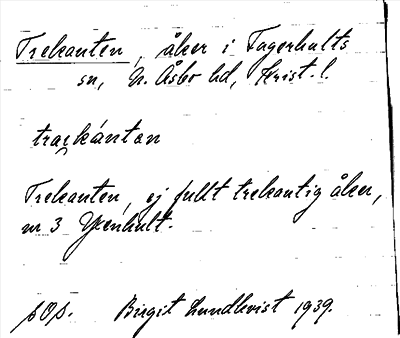 Trekanten, åker i Fagerhults
sn, N. Åsbo hd, Krist. l.
trækánton
Trekanten, ej fullt trekantig åker,
nr 3 Ykenhult.
pOp. Birgit Lundkvist 1939.